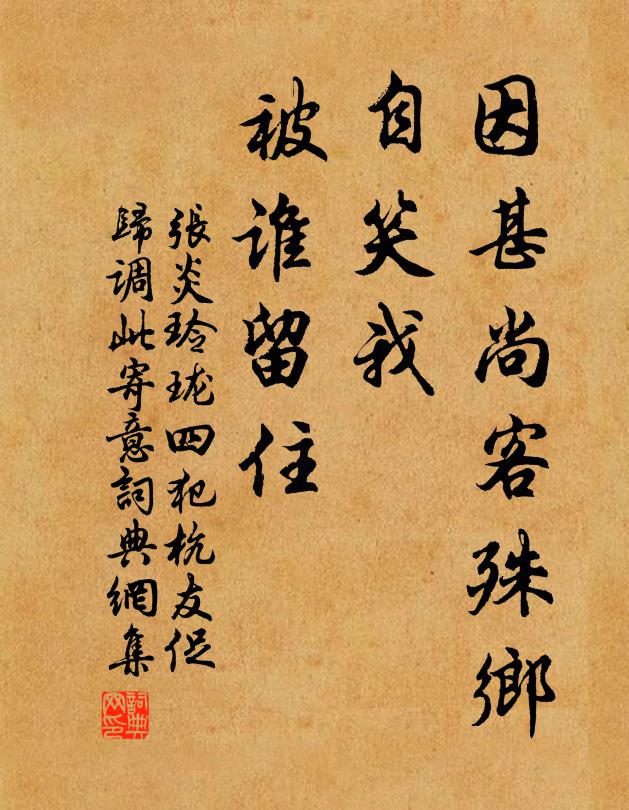 因甚尚客殊鄉
自笑我
被誰留住
張炎玲瓏四犯杭友促
歸調此寄意詞典網集
詞典網印